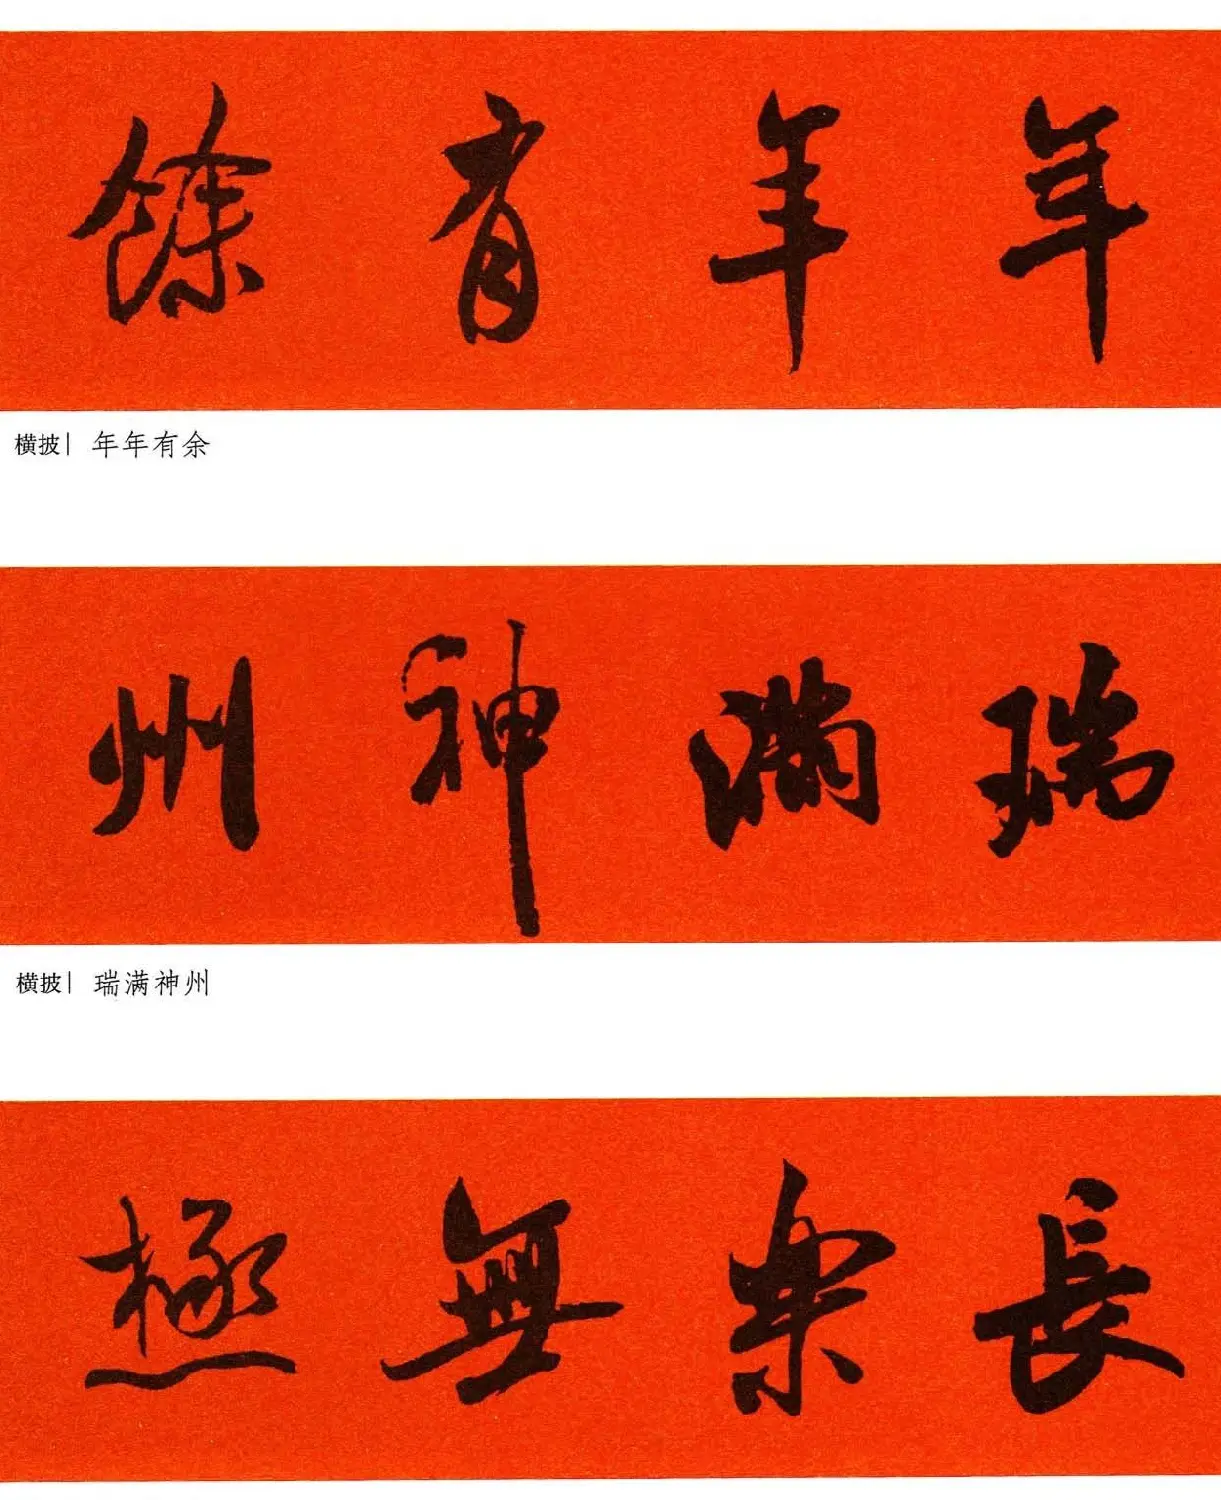 年年有餘
横披| 年年有余
瑞满神州
横披| 瑞满神州
長樂無極